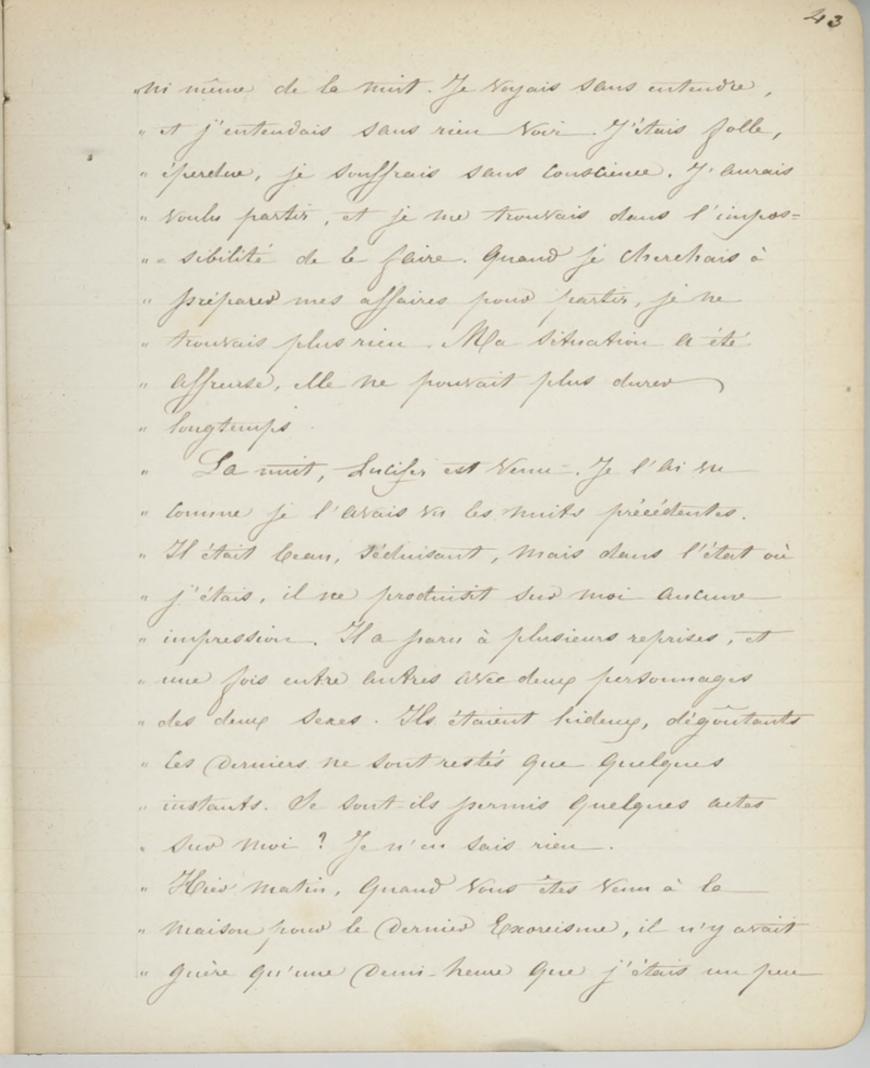 43
" ni même de la nuit. Je voyais sans entendre,
" et j'entendais sans rien voir. J'étais folle,
" éperdue, je souffrais sans conscience. J'aurais
" voulu partir, et je me trouvais dans l'impos=
" = sibilité de le faire. Quand je cherchais à
" préparer mes affaires pour partir, je ne
" trouvais plus rien. Ma situation a été
" affreuse, elle ne pouvait plus durer
" longtemps.
" La nuit, Lucifer est venu. Je l'ai vu
" comme je l'avais vu les nuits précédentes.
" Il était beau, séduisant, mais dans l'état où
" j'étais, il ne produisit sur moi aucune
" impression. Il a paru à plusieurs reprises, et
" une fois entre autres avec deux personnages
" des deux sexes. Ils étaient hideux, dégoûtants
" Ces derniers ne sont restés que quelques
" instants. Se sont-ils permis quelques actes
" sur moi ? Je n'en sais rien.
" Hier matin, quand vous êtes venu à la
" maison pour le dernier Exorcisme, il n'y avait
" guère qu'une demi-heure que j'étais un peu